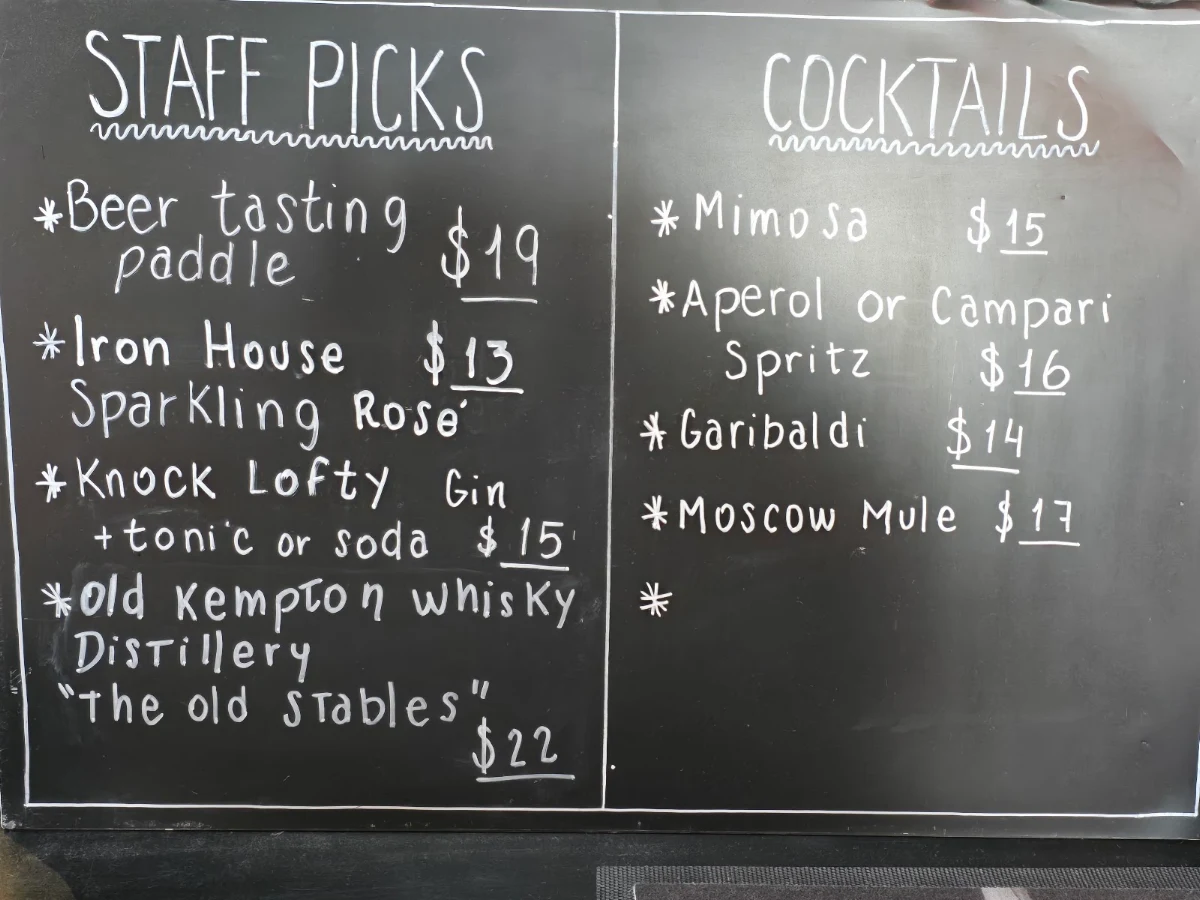 STAFF PICKS
* Beer tasting
paddle $19
* Iron House $13
Sparkling Rosé
* Knock Lofty Gin
+ tonic or soda $15
* Old Kempton Whisky
Distillery
"The old Stables"
$22
COCKTAILS
* Mimosa $15
* Aperol or Campari
Spritz $16
* Garibaldi $14
* Moscow Mule $17
*